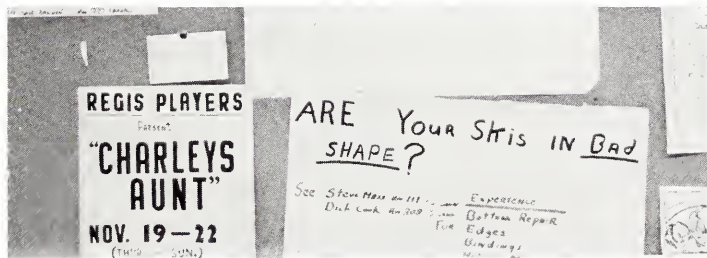 REGIS PLAYERS
PRESENT
"CHARLEYS
AUNT"
NOV. 19—22
(THUR — SUN.)
ARE YOUR SKIS IN BAD
SHAPE?
See Steve Moss Rm 111
Dick Cook Rm 308
For
Experience
Bottom Repair
Edges
Bindings